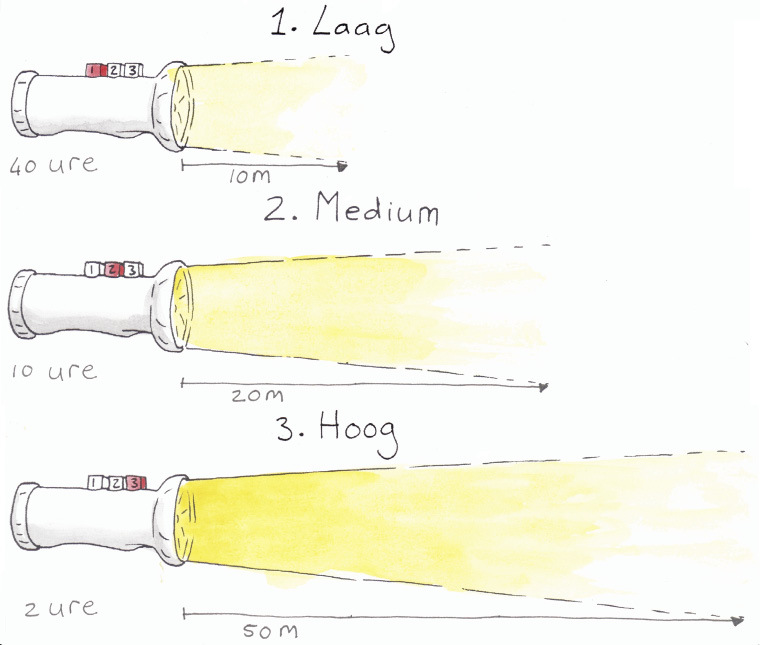 1. Laag
1 2 3
40 ure
10m
2. Medium
1 2 3
10 ure
20m
3. Hoog
1 2 3
2 ure
50m